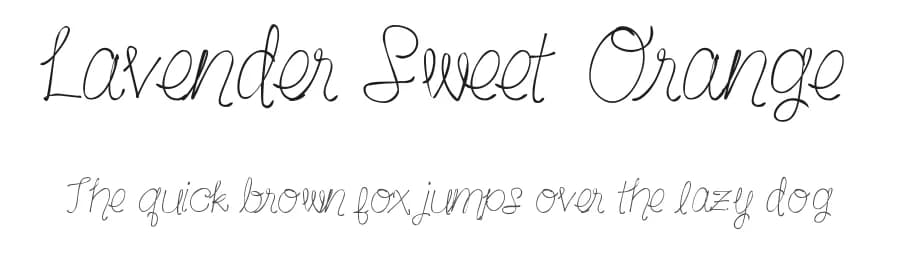 Lavender Sweet Orange
The quick brown fox jumps over the lazy dog